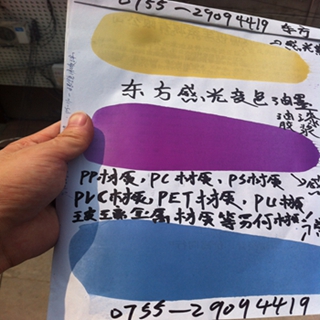 0755-29094419 东方
东方感光变色油墨
油漆
PP材质，PC材质，PS材质
PVC材质，PET材质，PU材
玻璃金属材质等另何材
0755-29094419